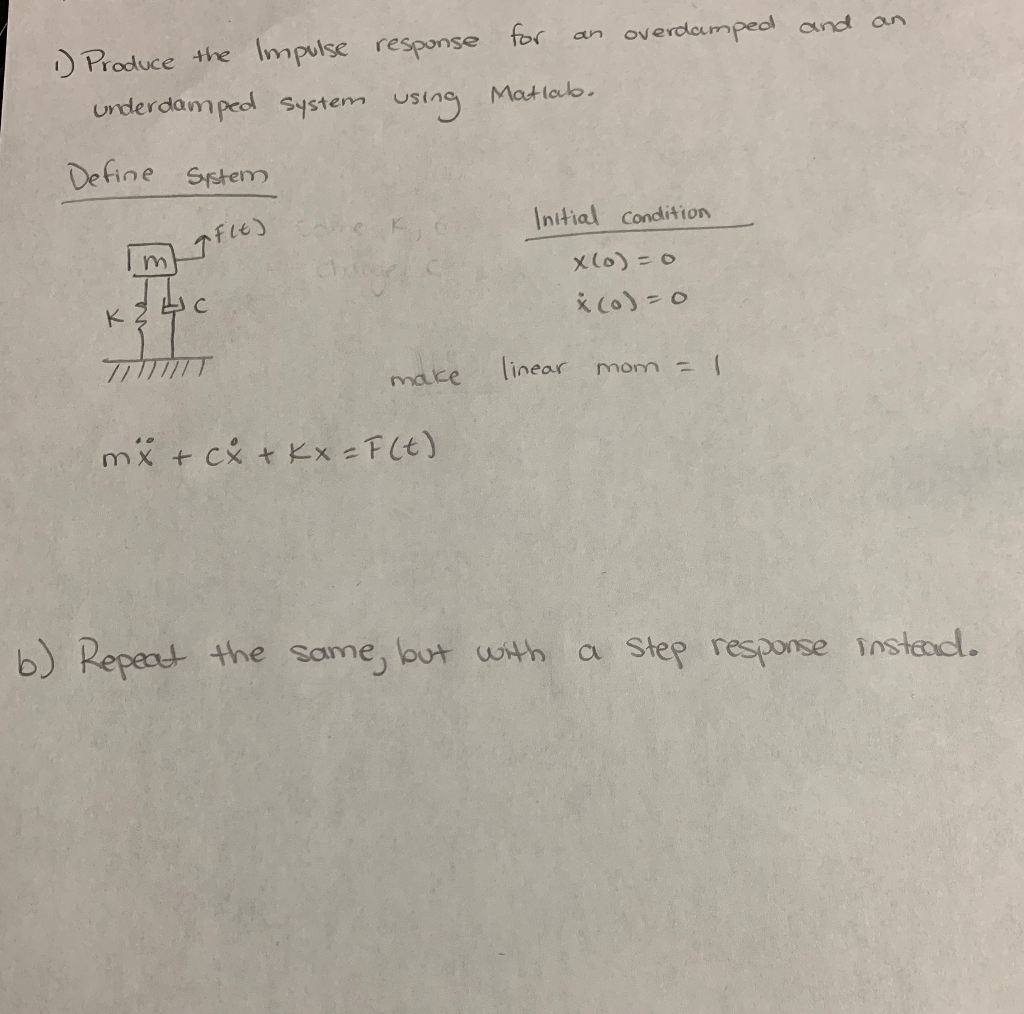 1) Produce the Impulse response for an overdamped and an
underdamped system using Matlab.
Define System
Initial condition
F(t)
m
x(0) = 0
K
C
ẋ(0) = 0
make linear mom = 1
mẍ + cẋ + Kx = F(t)
b) Repeat the same, but with a step response instead.